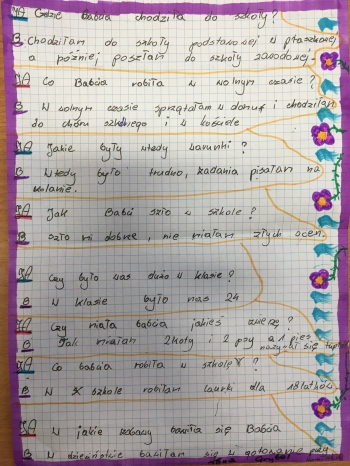 JA Gdzie Babcia chodziła do szkoły?
B. Chodziłam do szkoły podstawowej w
a później poszłam do szkoły zawodowej.
JA Co Babcia robiła w wolnym czasie?
B W wolnym czasie sprzątałam w domu i chodziłam
do chóru szkolnego i w kościele
JA Jakie były wtedy warunki?
B Wtedy było trudno, zadania pisałam na
kolanie.
JA Jak Babci szło w szkole?
B szło mi dobrze, nie miałam złych ocen.
JA Czy było was dużo w klasie?
B W klasie było nas 24
JA Czy miała babcia jakieś zwierzę?
B Tak miałam 2 koty i 2 psy a 1 pies
nazywał się
JA Co babcia robiła w szkole?
B W szkole robiłam laurki dla
JA W jakie zabawy bawiła się Babcia
B W bawiłam się w gotowanie